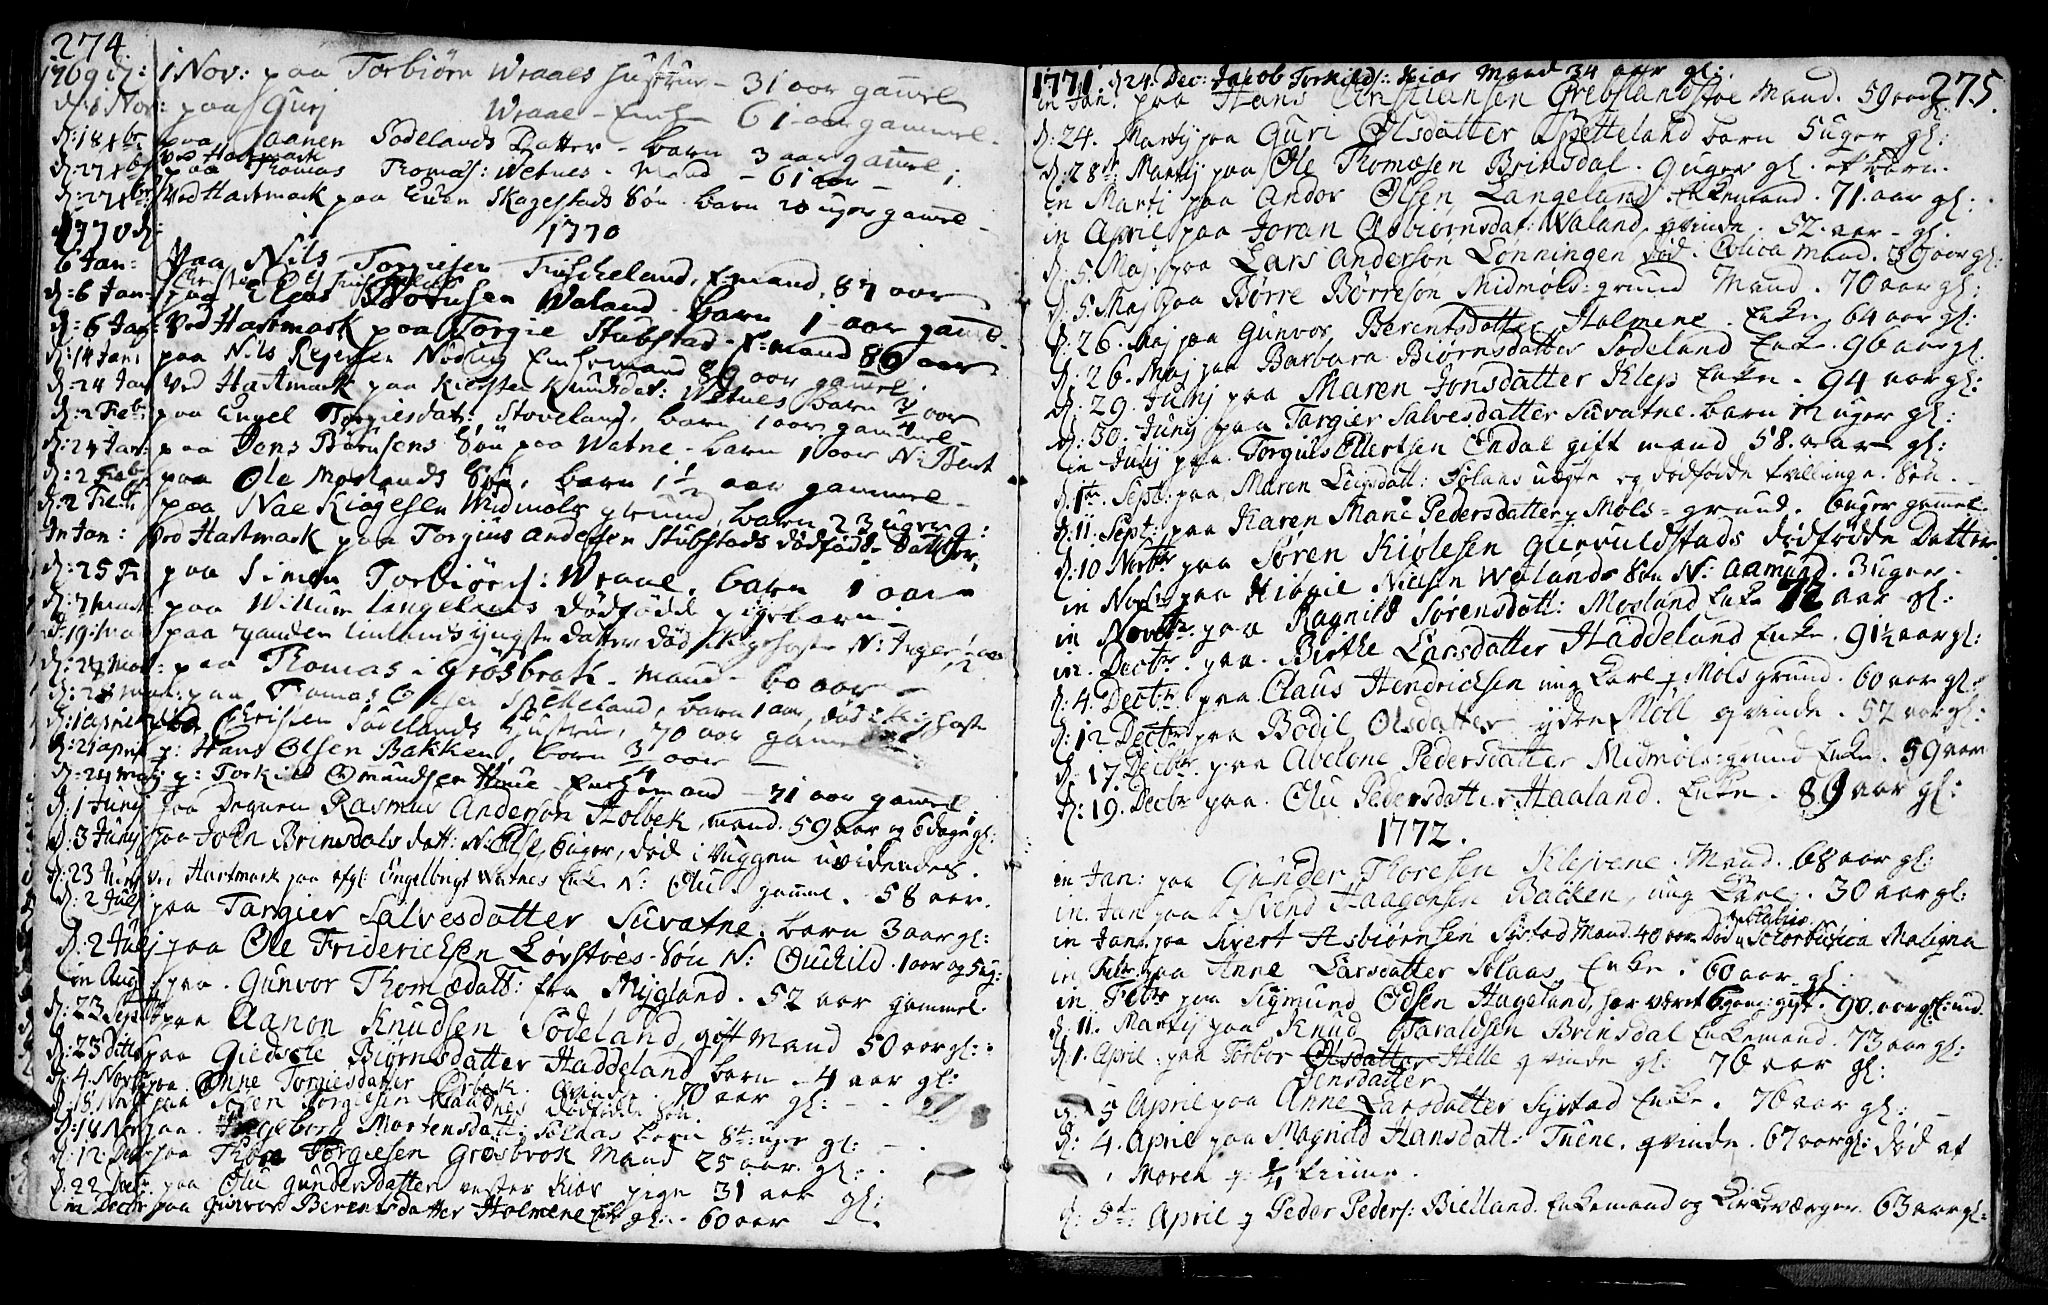 274.
1769 d: 1 Nov: paa Torbiørn Wraaes Hustrue - 31 aar gamel
d: 1 Nov: paa Guri Wraae - Enke 61 aar gammel
d: 18 xbr paa Aanen Sodelands Datter - barn 3 aar gamel
d: 27 xbr ved Hartmark paa Thomas Thomas: Wetnes - Mand - 61 aar -
d: 27 xbr ved Hartmark paa Even Skagestads Søn barn 20 uger gamel -
1770 d: 1770
6 Jan: Paa Nils Torgiesen Tuscheland, Emand, 87 aar
d: 6 Jan: paa Elias Waland barn 1 aar gamel
d: 6 Jan: ved Hartmark paa Torgie Stubstad - E:mand 86 aar
d: 14 Jan: paa Nils Rejersen Nøding Enkemand 89 aar gamel.
d: 24 Jan ved Hartmark paa Kirsten Knudsdat: Wetnes barn 3/4 aar
d: 2 Feb: paa Engel Torgiesdat: Stoveland, barn 1 aar gammel -
d: 24 Jan: paa Jens Børnsens Søn paa Watne - barn 1 aar N: Bent
d: 2 Feb: paa Ole Moslands Søn, barn 1 1/2 aar gammel -
d: 2 Feb: paa Nae Kiøgesen Midmols grund, barn 23 uger g:
In Jan: ved Hartmark paa Torgius Andersen Stubstads dødfødde Datter,
d: 25 F: paa Simen Torbiørns: Wraae, barn 1 aar
d: 7 Mart: paa Willum Langelands dødfødde pigebarn -
d: 19: Mar paa Linlands yngste datter død N: Inger
d: 24 Mar: paa Thomas i Grosbrok - mand - 60 aar -
d: 28 mart: paa Thomas Spikeland, barn 1 aar, død
d: 1 April Christen Sodelands Hustrue, 70 aar gamel
d: 21 april p: Hans Olsen Bakken, barn 3/4 aar -
d: 24 Maj p: Torkild Omundsen Houe - Enkemand - 71 aar gamel:
d: 1 Junj paa Degnen Rasmus Anderson Holbek, mand. 59 aar og 6 dage gl:
d: 3 Junj paa John Brinsdals datt: N: Else 6 uger, død i Vuggen uvidendes.
d: 23 Junj ved Hartmark paa afgl: Engelbregt Watnes Enke N: Olu. gamml. 58 aar.
d: 2 Julj paa Targier Salvesdatter Suvatne. barn 3 aar gl:
d: 2 Julj paa Ole Friderichsen Lørstvès Søn N: Ouchild. 1 aar og 5 ug:
in Aug: paa. Gunvor Thomædatt: fra Mygland. 52 aar gammel.
d: 23 Septbr paa Aanon Knudsen Sodeland, gift mand 50 aar gl:
d: 23 ditto paa Giedske Biørnsdatter Haddeland barn - 4 aar gl:
d: 4. Novbr paa. Anne Torgiesdatter Ørbek. Qvinde. 70 aar gl:
d: 18. Nov: paa Søren Torgiesen Raadnes dødfødde Søn
d: 14 Nov: paa. Ingeborg Mortensdatt: Solaas barn 8te uger gl:
d: 12. Dec: paa Thore Torgiesen Grosbrok mand 25 aar. gl:
d: 22 Decbr: paa Olu Gundersdatter vester Kiær pige 31 aar gl:
in Decbr paa Gunvor Berentsdatter Holmene Enke gl: 60 aar gl.
1771. d 24. Dec: Jacob Torkilds: Kiær Mand 34 aar gl: 275.
in Jan: paa Hans Christiansen Grebslandstøe Mand. 59 aar gl:
d: 24. Martij paa Guri Olsdatter Betteland barn 5 uger gl:
d: 28de Martij paa Ole Thomæsen Brinsdal. 9 uger gl. et barn.
in Martj paa Andor Olsen Langeland. Enkemand. 71. aar gl:
in April paa Joran Asbiørnsdat: Waland, qvinde. 52. aar - gl:
d: 5. Maj. paa Lars Anderson Lønningen, død. Colica Mand. aar gl:
d: 5. Maj paa Børre Børreson Midmols: grund Mand. 70 aar gl:
d: 26. Maj paa Gunvor Berentsdatter Holmene. Enke, 64 aar gl:
d: 26. Maj paa Barbara Biørnsdatter Sodeland Enke. 96 aar gl:
d: 29. Junj paa Maren Jonsdatter Klep Enke. 94 aar gl:
d: 30. Junj paa Targier Salvesdatter Suvatne. barn 12 uger gl:
in Julj paa. Torgiuls Ellertsen Endal gift mand 58. aar gl:
d: 1te. Sept: paa, Maren Leigsdatt: Solaas uægte og dødfødde Søn.
d: 11. Sept: paa Karen Marie Pedersdatter p Mols - grund. 6 uger gammel
d: 10 Novbr paa Søren Kiølesen Giervuldstads dødfødde Datter
in Novbr paa Kibsie Nielsen Walands Søn N: Aamund. 3 uger -
in Novbr. paa Ragnild Sørensdatt: Mosland Enke 72 aar gl:
in. Decbr. paa. Birthe Larsdatter Haddeland Enke. 91 1/2 aar gl:
d: 4. Decbr paa Claus Hendrichsen ung Karl p Mols grund. 60 aar gl:
d: 12 Decbr paa Bodil Olsdatter ydre Møll qvinde. 57 aar gl:
d: 17. Decbr. paa Abelone Pedersdatter Midmols: grund Enke. 59 aar
d: 19. Decbr paa. Olu Pedersdatter Haaland. Enke. 89 aar gl:
1772.
in Jan: paa Gunder Thoresen Klejvene. Mand. 68 aar gl:
in Jan paa Svend Haagensen Bakken, ung Karl. 30 aar gl:
in Jan: paa Sivert Asbiørnsen Systad Mand. 40 aar Død Febris Scorbutica Maligna
in Febr paa Anne Larsdatter Solaas Enke. 60 aar gl:
in Febr paa Sigmund Odsen Hageland, har været 6 gang: gift. 90. aar gl: mnd.
d: 11. Martij paa Knud Taraldsen Brinsdal Enkemand. 73 aar gl:
d: 1. April: paa Torbor Olsdatter Helle qvinde gl: 76 aar gl:
Jensdatter
d: 5 April paa Anne Larsdatter Systad Enke. 76 aar gl:
d: 4. April paa Magnild Hansdatt: Tuene. qvinde. 67 aar gl: død af
Moren p 1/4 Time.
d: 5te: April p Peder Peders: Bielland. Enkemand og Kirkeværger 63 aar gl: